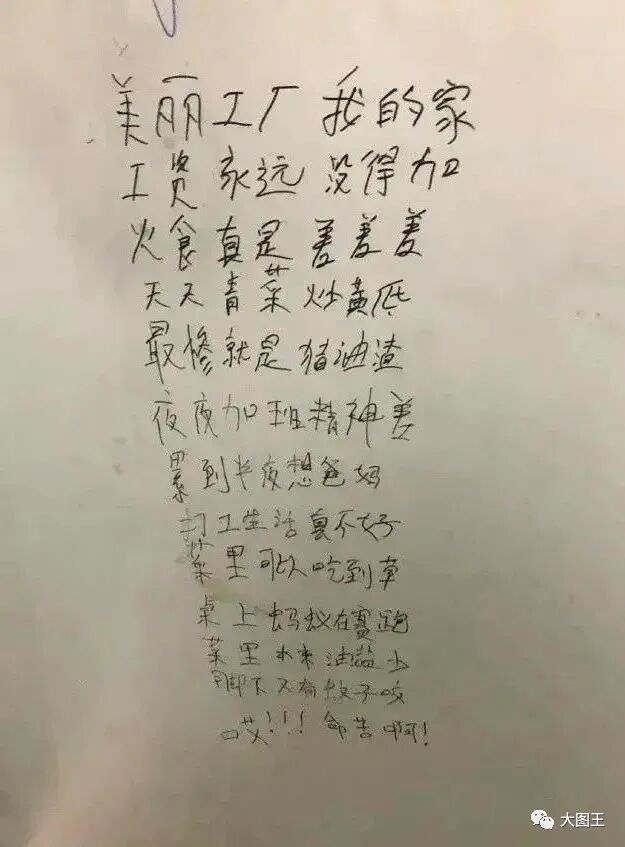 美丽工厂我的家
工资永远没得加
火食真是差差差
天天青菜炒黄瓜
最惨就是猪油渣
夜夜加班精神差
累到半夜想爸妈
打工生活真不好
菜里可以吃到草
桌上蚂蚁在赛跑
菜里水来油盐少
脚下又有蚊子咬
哎!!! 命苦啊!
大图王